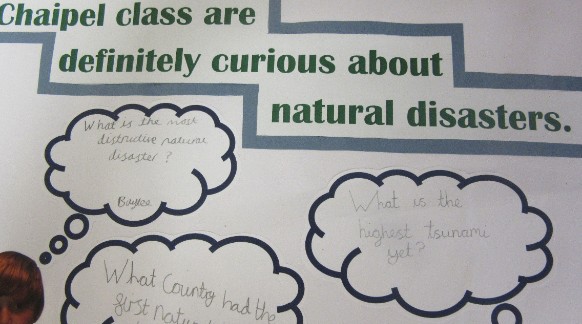 Chaipel class are
definitely curious about
natural disasters.
What is the most
distructive natural
disaster ?
Baylee
What is the
highest tsunami
yet?
What Country had the
first